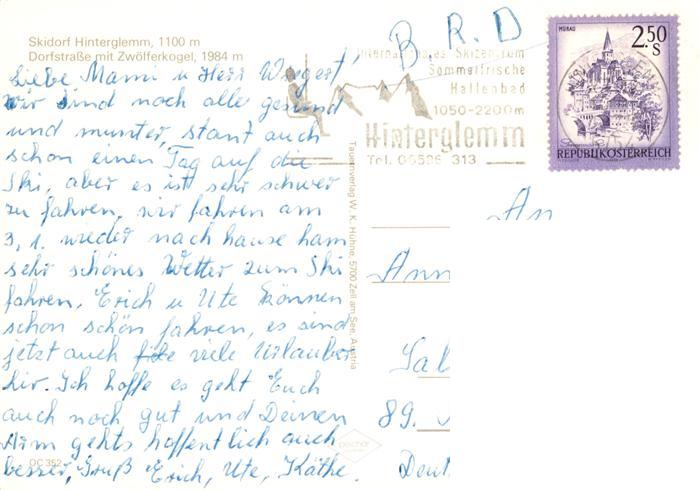 Skidorf Hinterglemm, 1100 m
Dorfstraße mit Zwölferkogel, 1984 m
Liebe Mami u Herr
wir sind noch alle gesund
und munter, stant auch
schon einen Tag auf die
Ski, aber es ist sehr schwer
zu fahren, wir fahren am
3, 1. wieder nach hause ham
sehr schönes Wetter zum Ski
fahren, Erich u Ute können
schon schön fahren, es sind
jetzt auch viele Urlauber
hir. Ich hoffe es geht Euch
auch noch gut und Deinen
Arm gehts hoffentlich auch
besser, Gruß Erich, Ute, Käthe.
OC 352
Tauernverlag W. K. Hühne, 5700 Zell am See, Austria
B. R. D
Internationales Skizentrum
Sommerfrische
Hallenbad
1050-2200m
Hinterglemm
Tel. 06586 313
MURAU
2.50
S
REPUBLIK ÖSTERREICH
An
Ann
Sal
89.
Deut